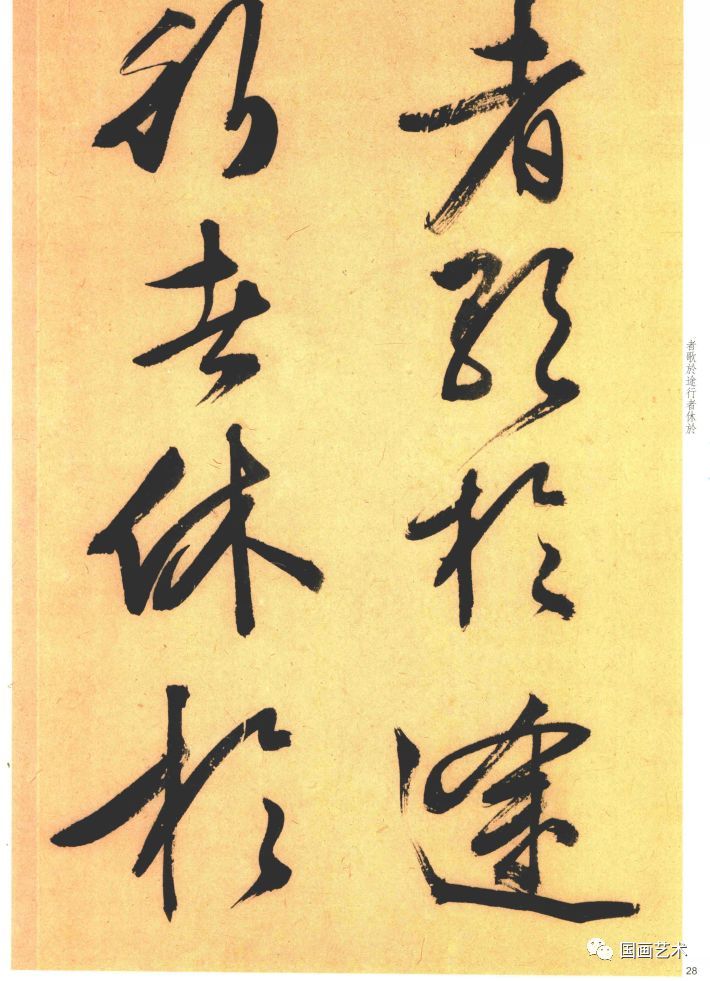 者歌於途
行者休於
者歌於途行者休於
国画艺术
28